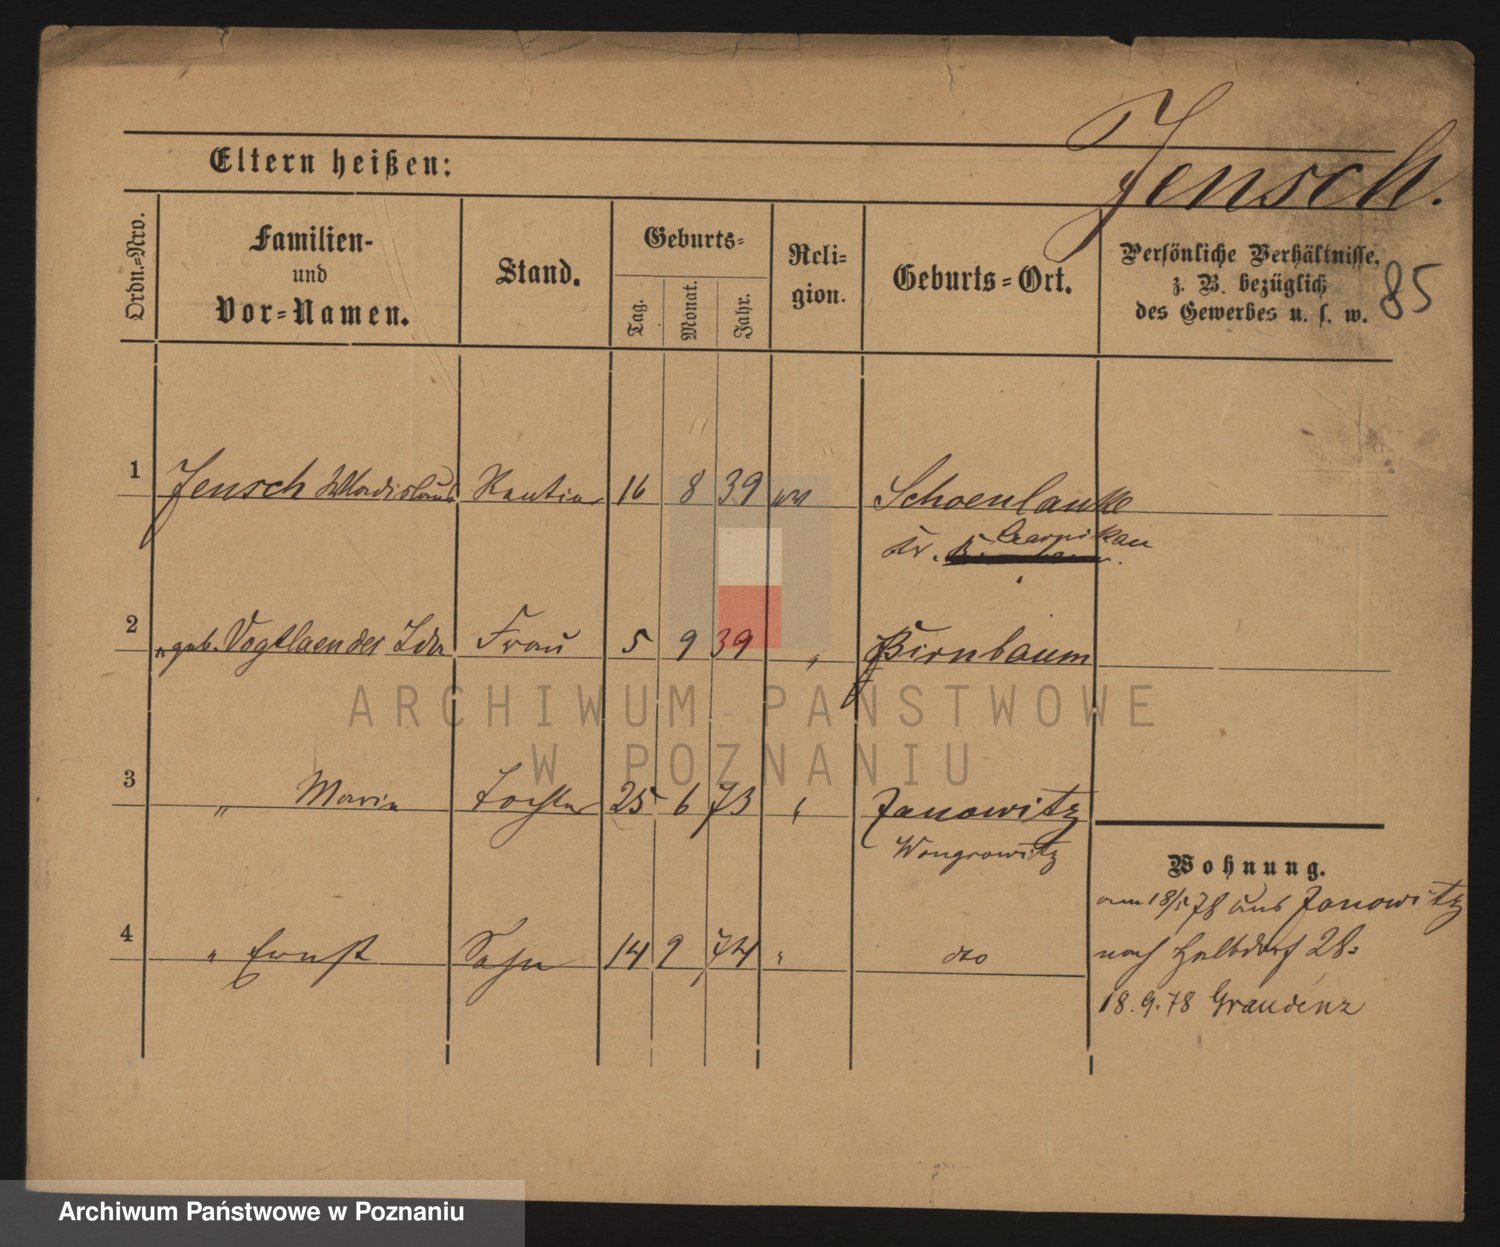 Jensch.
Eltern heißen:
Ordn.-Nro.
Familien-
und
Vor-Namen.
Stand.
Geburts-
Tag.
Monat.
Jahr.
Reli-
gion.
Geburts-Ort.
Persönliche Verhältnisse,
z. B. bezüglich
des Gewerbes u. s. w.
85
1 Jensch Wladislaus 16 8 39 Schoenlanke
Kr. Czarnikau
2 " geb. Vogtlaender Ida Frau 5 9 39 " Birnbaum
ARCHIWUM PAŃSTWOWE
W POZNANIU
3 " Maria Tochter 25 6 73 " Janowitz
Wongrowitz
Wohnung.
am 18/5 78 aus Janowitz
4 " Ernst Sohn 14 9 74 " dto
nach Halbdorf 28.
18. 9. 78 Graudenz
Archiwum Państwowe w Poznaniu